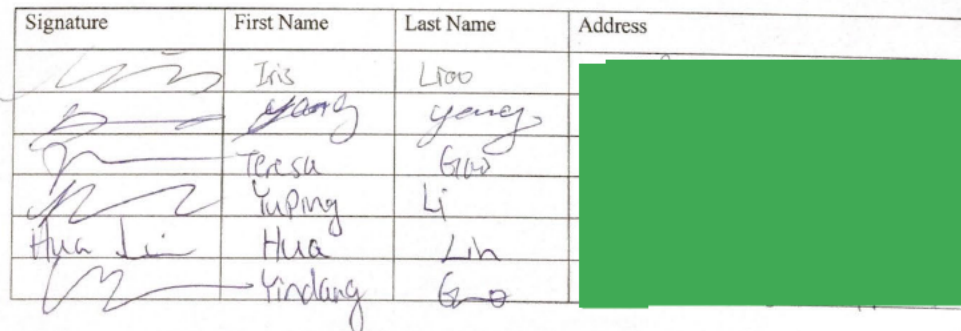 Signature First Name Last Name Address
Iris Liao
Yang Yang
Teresa Guo
YuPing Li
Hua Lin Hua Lin
Yindang Guo